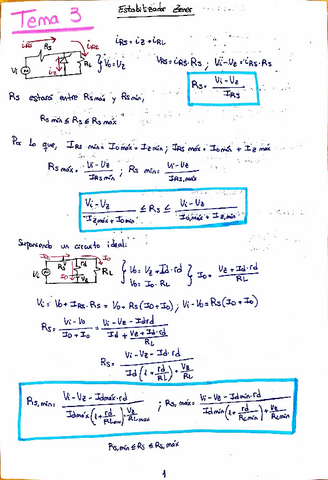 Estabilizador zener
Tema 3
iRS = iZ + iRL
VRS = iRS · RS ; Vi - VZ = iRS · RS
V0 = VZ
RS = (Vi - VZ) / IRS
RS estará entre RS máx y RS mín,
RS mín ≤ RS ≤ RS máx
Por lo que, IRS mín = I0 máx + IZ mín ; IRS máx = I0 mín + IZ máx
RS máx = (Vi - VZ) / IRS mín ; RS mín = (Vi - VZ) / IRS, máx
(Vi - VZ) / (IZ, máx + I0 mín) ≤ RS ≤ (Vi - VZ) / (I0, máx + IZ, mín)
Suponiendo un circuito ideal:
{ V0 = VZ + Id · rd
V0 = I0 · RL } I0 = (VZ + Id · rd) / RL
Vi = V0 + IRS · RS = V0 + RS (ID + I0) ; Vi - V0 = RS (ID + I0)
RS = (Vi - V0) / (ID + I0) = (Vi - VZ - Id rd) / (Id + (VZ + Id · rd) / RL)
RS = (Vi - VZ - Id · rd) / (Id (1 + rd / RL) + VZ / RL)
RS, mín = (Vi - VZ - Id máx · rd) / (Id máx (1 + rd / RL máx) + VZ / RL máx) ; RS, máx = (Vi - VZ - Id mín · rd) / (Id mín (1 + rd / RL mín) + VZ / RL mín)
RS, mín ≤ RS ≤ RS, máx
1